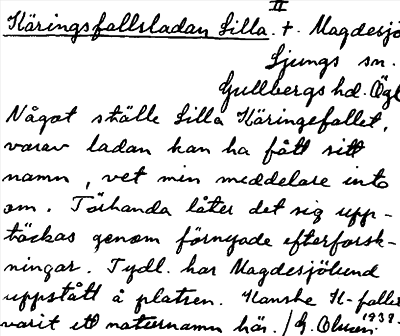 II
Käringsfallsladan Lilla. +. Magdesjö
Ljungs sn.
Gullbergs hd. Ögl
Något ställe Lilla Käringefallet,
varav ladan kan ha fått sitt
namn, vet min meddelare inte
om. Törhanda låter det sig upp-
täckas genom förnyade efterforsk-
ningar. Tydl. har Magdesjölund
uppstått å platsen. Kanske K-fallet
varit ett naturnamn här. / G. Olsson 1939.